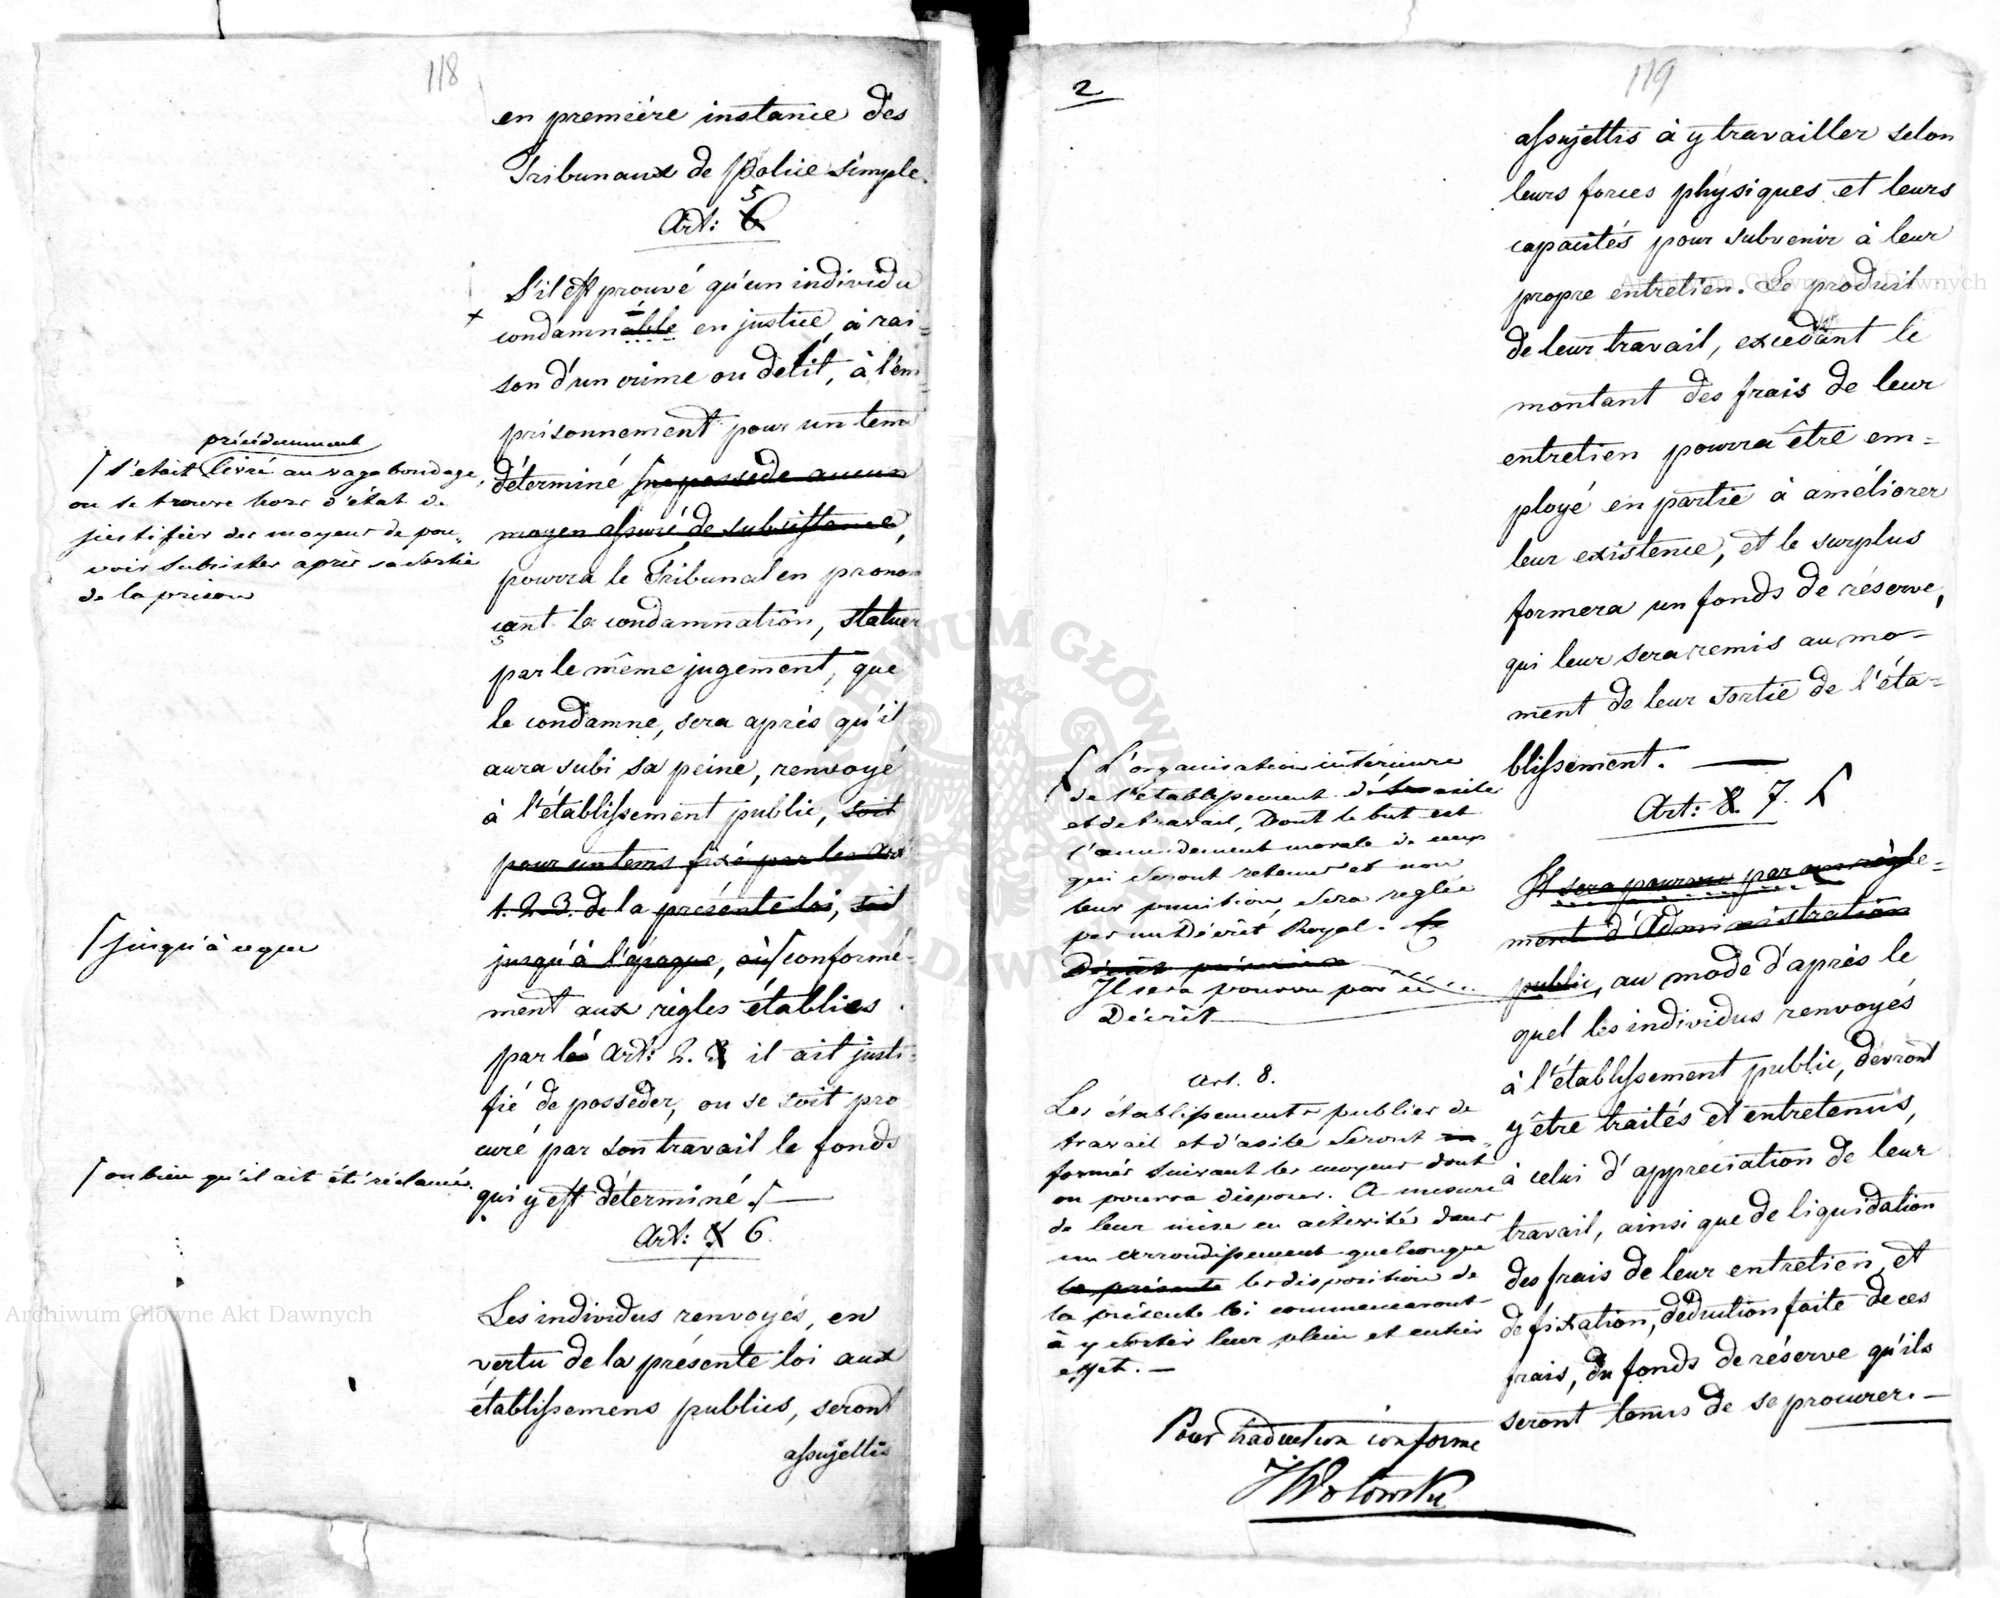 118
en première instance des
Tribunaux de Police simple.
5
Art: 6
S'il est prouvé qu'un individu
condamnable en justice, à rai=
son d'un crime ou délit, à l'em=
prisonnement pour un tems
déterminé ne possede aucun
moyen assuré de subsistance,
pourra le Tribunal en pronon
çant la condamnation, statuer
par le même jugement, que
le condamne, sera après qu'il
aura subi sa peine, renvoyé
à l'établissement public, soit
pour un tems fixé par les Art
1. 2. 3. de la présente loi, soit
jusqu'à l'époque, où conformé-
ment aux règles établies
par les Art: 2. 3 il ait justi-
fié de posséder, ou se soit pro
curé par son travail le fonds
qui y est déterminé.
Art: 7 6.
Les individus renvoyés, en
vertu de la présente loi aux
établissemens publics, seront
assujettis
précédemment
s'était livré au vagabondage,
ou se trouve hors d'état de
justifier des moyens de pou-
voir subsister après sa sortie
de la prison
jusqu'à ce que
ou bien qu'il ait été réclamé.
2
119
assujettis à y travailler selon
leurs forces physiques et leurs
capacités pour subvenir à leur
propre entretien. Le produit
de leur travail, excedant le
montant des frais de leur
entretien pourra être em=
ployé en partie à améliorer
leur existence, et le surplus
formera un fonds de réserve,
qui leur sera remis au mo-
ment de leur sortie de l'éta-
blissement.
Art: 8. 7.
Il sera pourvu par un règle-
ment d'Administration
public, au mode d'après le
quel les individus renvoyés
à l'établissement public, devront
y être traités et entretenus,
à celui d'appréciation de leur
travail, ainsi que de liquidation
des frais de leur entretien, et
de fixation, déduction faite de ces
frais, du fonds de réserve qu'ils
seront tenus de se procurer.
L'organisation intérieure
de l'établissement d'asile
et de travail, Dont le but est
l'amendement morale de ceux
qui seront retenus et non
leur punition, sera reglée
par un Décrêt Royal.
Il sera pourvu par un
Décrêt
Art. 8.
Les établissements publics de
travail et d'asile seront
formés suivant les moyens dont
on pourra disposer. A mesure
de leur mise en activité dans
un arrondissement quelconque
la présente les disposition de
la présente loi commenceront
à y sortir leur plein et entier
effet.
Pour traduction conforme
J Wolowski
Archiwum Główne Akt Dawnych
Archiwum Główne Akt Dawnych
ARCHIWUM GŁÓWNE AKT DAWNYCH